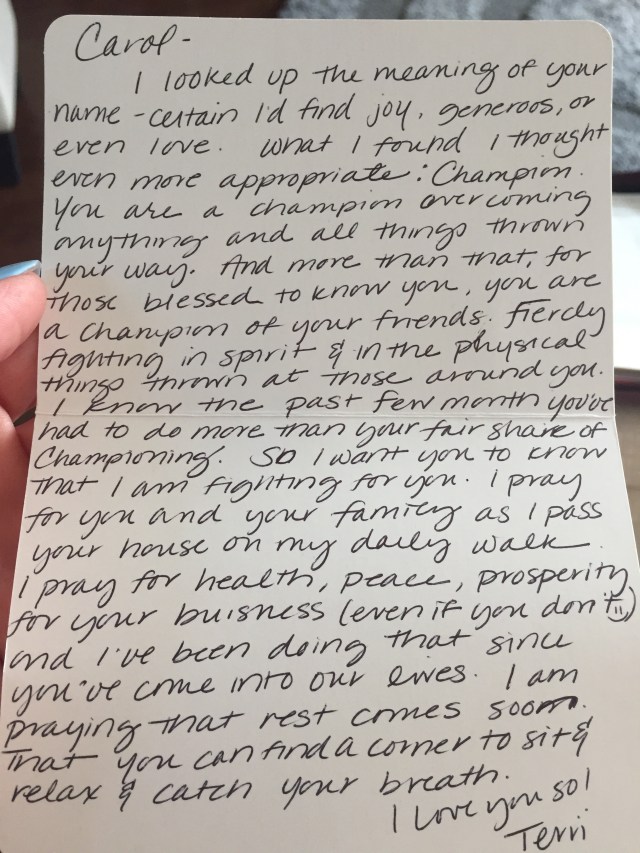 Carol -
I looked up the meaning of your
name - certain I'd find joy, generoos, or
even love. What I found I thought
even more appropriate: Champion.
You are a champion overcoming
anything and all things thrown
your way. And more than that, for
those blessed to know you, you are
a champion of your friends. Fiercly
fighting in spirit & in the physical
things thrown at those around you.
I know the past few month you've
had to do more than your fair share of
Championing. So I want you to know
that I am fighting for you. I pray
for you and your family as I pass
your house on my daily walk.
I pray for health, peace, prosperity
for your buisness (even if you don't ☺)
and I've been doing that since
you've come into our lives. I am
praying that rest comes soon.
That you can find a corner to sit &
relax & catch your breath.
I love you so!
Terri